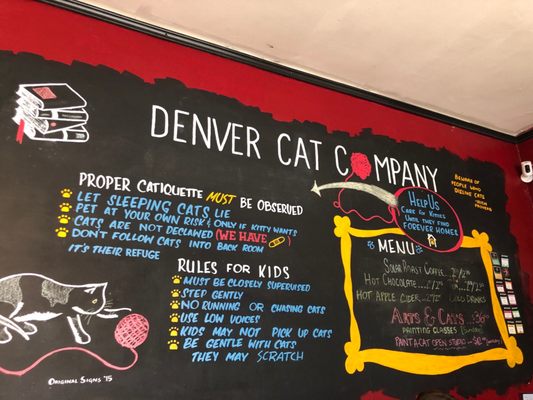 DENVER CAT COMPANY
BEWARE OF
PEOPLE WHO
DISLIKE CATS
IRISH
PROVERB
PROPER CATIQUETTE MUST BE OBSERVED
LET SLEEPING CATS LIE
PET AT YOUR OWN RISK & ONLY IF KITTY WANTS
CATS ARE NOT DECLAWED (WE HAVE
DON'T FOLLOW CATS INTO BACK ROOM
IT'S THEIR REFUGE
HELP US
CARE FOR KITTIES
UNTIL THEY FIND
FOREVER HOMES!
RULES FOR KIDS
MUST BE CLOSELY SUPERVISED
STEP GENTLY
NO RUNNING OR CHASING CATS
USE LOW VOICES
KIDS MAY NOT PICK UP CATS
BE GENTLE WITH CATS
THEY MAY SCRATCH
MENU
SOLAR ROAST COFFEE
HOT CHOCOLATE
HOT APPLE CIDER COLD DRINKS
ARTS & CATS
PRINTING CLASSES
PAINT A CAT OPEN STUDIO
ORIGINAL SIGNS '15